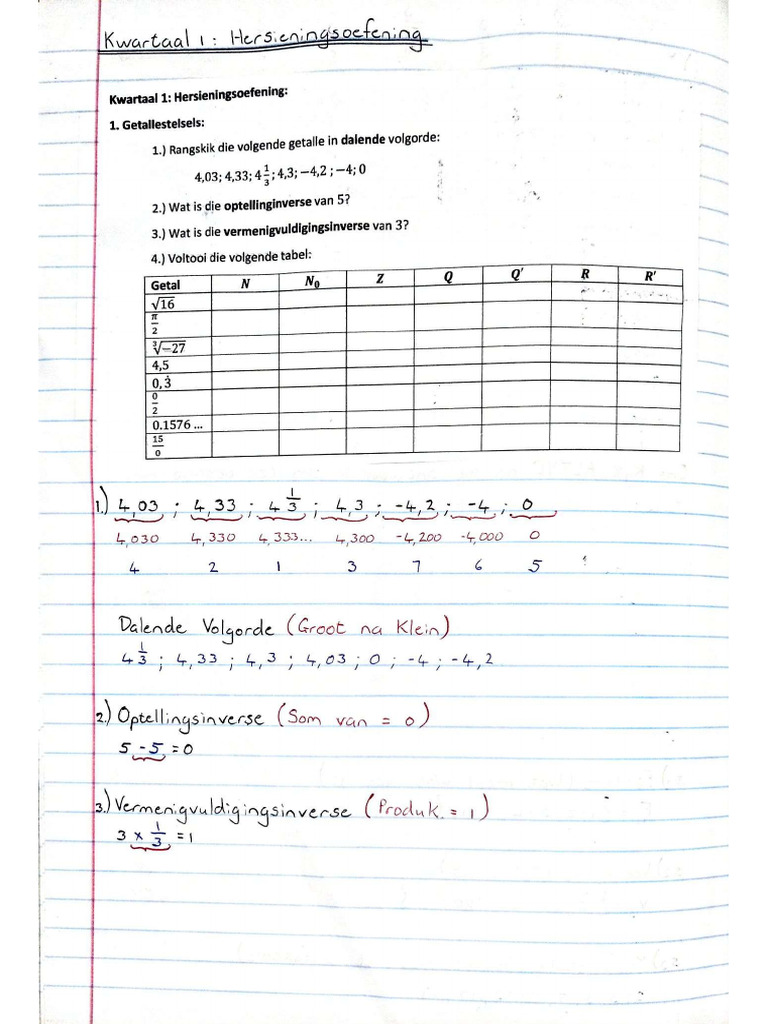 Kwartaal 1: Hersieningsoefening
Kwartaal 1: Hersieningsoefening:
1. Getallestelsels:
1.) Rangskik die volgende getalle in dalende volgorde:
4,03; 4,33; 4 1/3; 4,3; −4,2 ; −4; 0
2.) Wat is die optellinginverse van 5?
3.) Wat is die vermenigvuldigingsinverse van 3?
4.) Voltooi die volgende tabel:
Getal N N₀ Z Q Q′ R R′
√16
π/2
∛−27
4,5
0,3̇
0/2
0.1576 ...
15/0
1.) 4,03 ; 4,33 ; 4 1/3 ; 4,3 ; -4,2 ; -4 ; 0
4,030 4,330 4,333... 4,300 -4,200 -4,000 0
4 2 1 3 7 6 5
Dalende Volgorde (Groot na Klein)
4 1/3 ; 4,33 ; 4,3 ; 4,03 ; 0 ; -4 ; -4,2
2.) Optellingsinverse (Som van = 0)
5 - 5 = 0
3.) Vermenigvuldigingsinverse (Produk = 1)
3 × 1/3 = 1